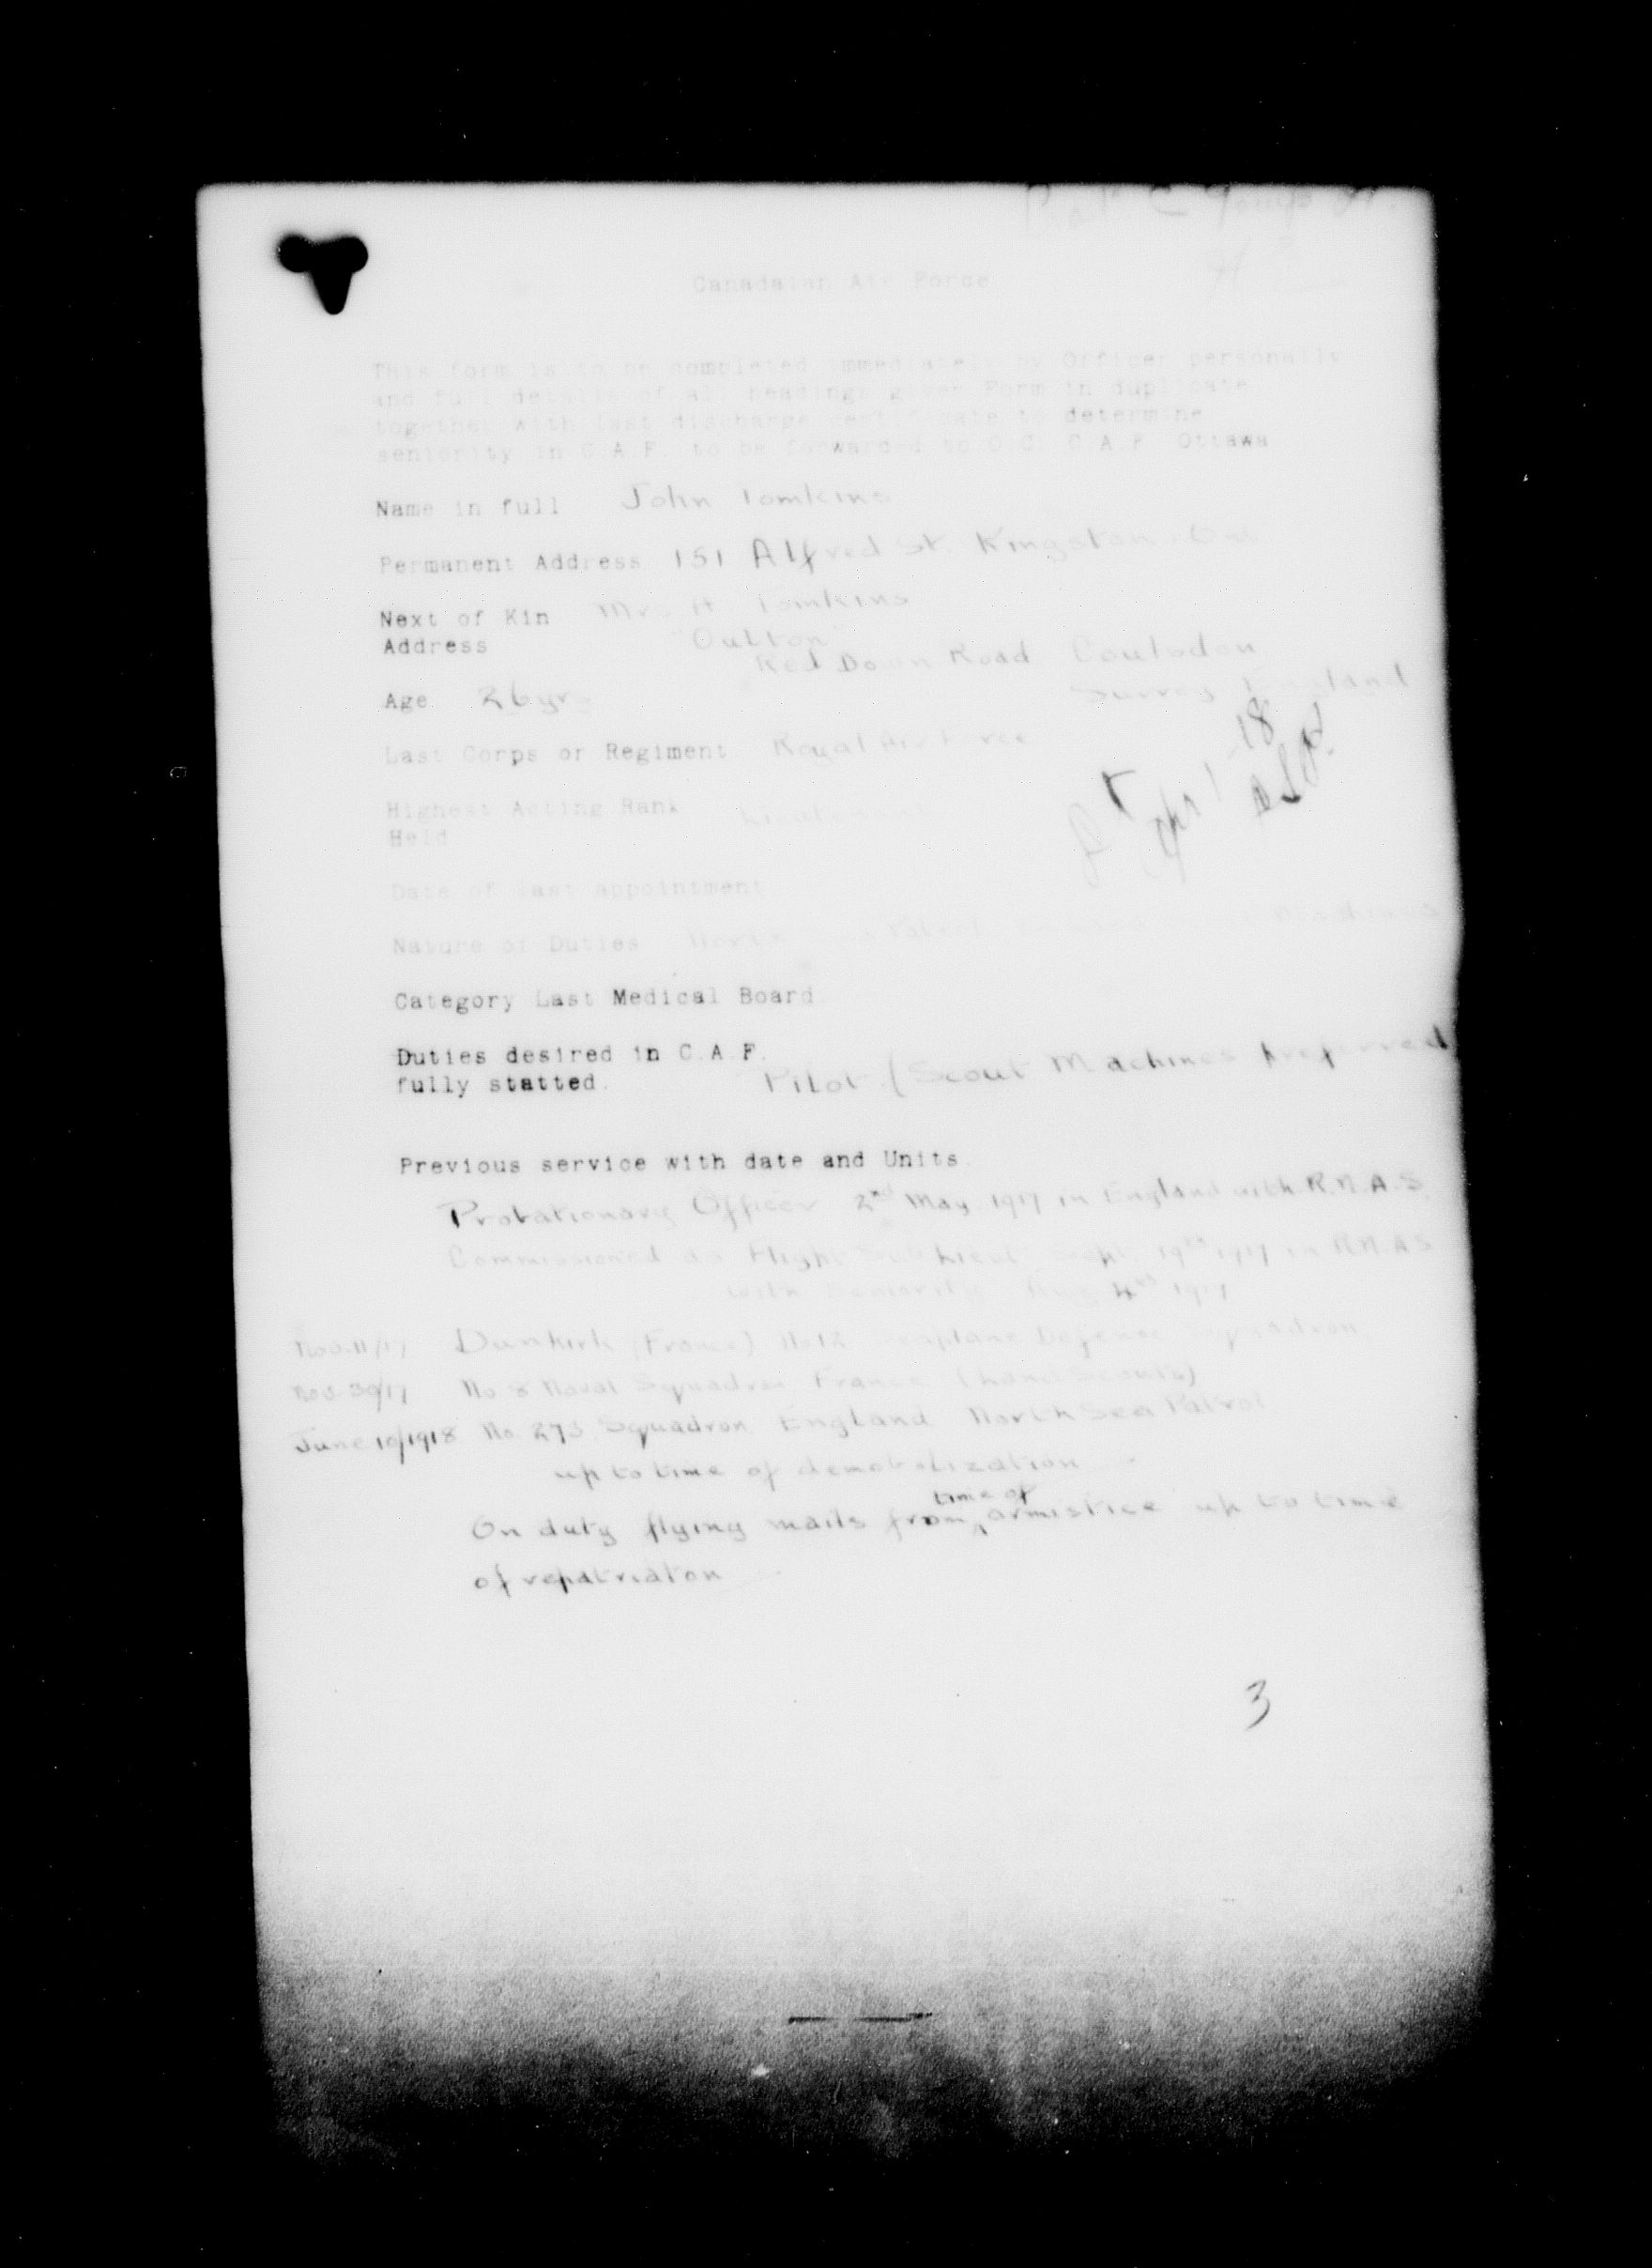 Canadaian Air Force
This form is to be completed immediately by Officer personally
and full details of all headings given Form in duplicate
together with last discharge certificate to determine
seniority in C.A.F. to be forwarded to O.C. C.A.F. Ottawa
Name in full John Tomkins
Permanent Address 151 Alfred St. Kingston Ont
Next of Kin Mr. H Tomkins
Address "Oulton"
Red Down Road Coulsdon
Surrey England
Age 26 yrs
18
Last Corps or Regiment Royal Air Force
Highest Acting Rank Lieutenant
Held
Date of last appointment
Nature of Duties North Sea Patrol
Category Last Medical Board
Duties desired in C.A.F.
fully statted. Pilot (Scout Machines preferred
Previous service with date and Units.
Probationary Officer 2nd May 1917 in England with R.N.A.S.
Commissioned as Flight Sub Lieut Sept. 19th 1917 in R.N.A.S
with Seniority Aug 4th 1917
Nov. 11/17 Dunkirk (France) Seaplane Defence Squadron
Nov. 30/17 No 8 Naval Squadron France (Land Scouts)
June 10/1918 No. 273 Squadron England North Sea Patrol
up to time of demobolization
time of
On duty flying mails from armistice up to time
of repatriaton
3